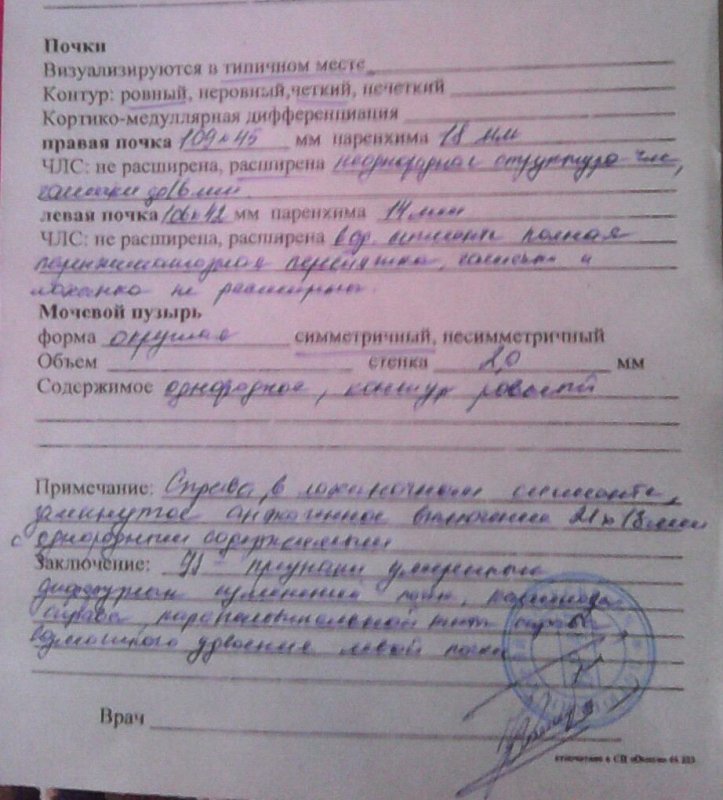 Почки
Визуализируются в типичном месте
Контур: ровный, неровный,четкий, нечеткий
Кортико-медуллярная дифференциация
правая почка 109х45 мм паренхима 18 мм
ЧЛС: не расширена, расширена неоднородная структура чле,
чашечки до 6 мм.
левая почка 106х42 мм паренхима 14 мм
ЧЛС: не расширена, расширена в ср. сегменте полная
паренхиматозная перемычка, чашечки и
лоханка не расширены.
Мочевой пузырь
форма округлая симметричный, несимметричный
Объем стенка 2,0 мм
Содержимое однородное, контур ровный
Примечание: Справа, в лоханочном сегменте,
замкнутое анэхогенное включение 21х18мм
с однородным содержимым
Заключение: УЗ - признаки умеренных
диффузных изменений почек,
справа, парапельвикальной кисты справа
возможного удвоения левой почки
Врач
отпечатано в СЦ